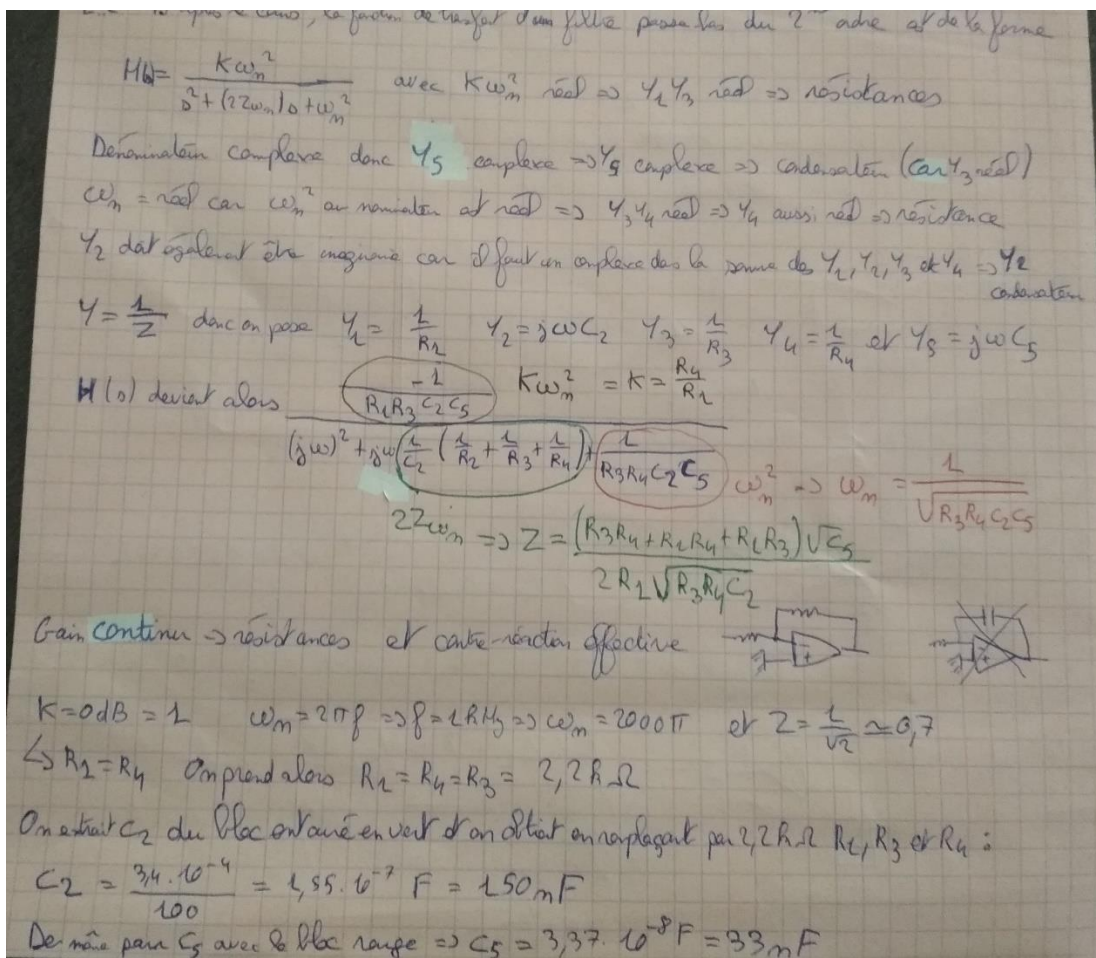 D'après le cours, la fonction de transfert d'un filtre passe bas du 2nd ordre est de la forme
H(s) = Kωn² / (s² + (2Zωn)s + ωn²) avec Kωn² réel => Y1Y3 réel => résistances
Dénominateur complexe donc Y5 complexe => Y5 complexe => condensateur (car Y3 réel)
ωn = réel car ωn² au nominateur est réel => Y3Y4 réel => Y4 aussi réel => résistance
Y2 doit également être imaginaire car il faut un complexe dans la somme des Y1, Y2, Y3 et Y4 => Y2
condensateur
Y = 1/Z donc on pose Y1 = 1/R1 Y2 = jωC2 Y3 = 1/R3 Y4 = 1/R4 et Y5 = jωC5
H(s) devient alors (-1/(R1R3C2C5)) / ((jω)² + jω(1/C2 (1/R2 + 1/R3 + 1/R4)) + 1/(R3R4C2C5)) Kωn² => K = R4/R1
ωn² => ωn = 1/√(R3R4C2C5)
2Zωn => Z = (R3R4 + R1R4 + R1R3)√C5 / (2R1√(R3R4C2))
Gain continu => résistances et contre-réaction effective
K = 0dB = 1 ωn = 2πf => f = 1kHz => ωn = 2000π et Z = 1/√2 ≃ 0,7
↳ R1 = R4 On prend alors R1 = R4 = R3 = 2,2kΩ
On extrait C2 du bloc entouré en vert et on obtient en remplaçant par 2,2kΩ R1, R3 et R4 :
C2 = 3,4.10⁻⁴/100 = 1,55.10⁻⁷ F = 150nF
De même pour C5 avec le bloc rouge => C5 = 3,37.10⁻⁸ F = 33nF